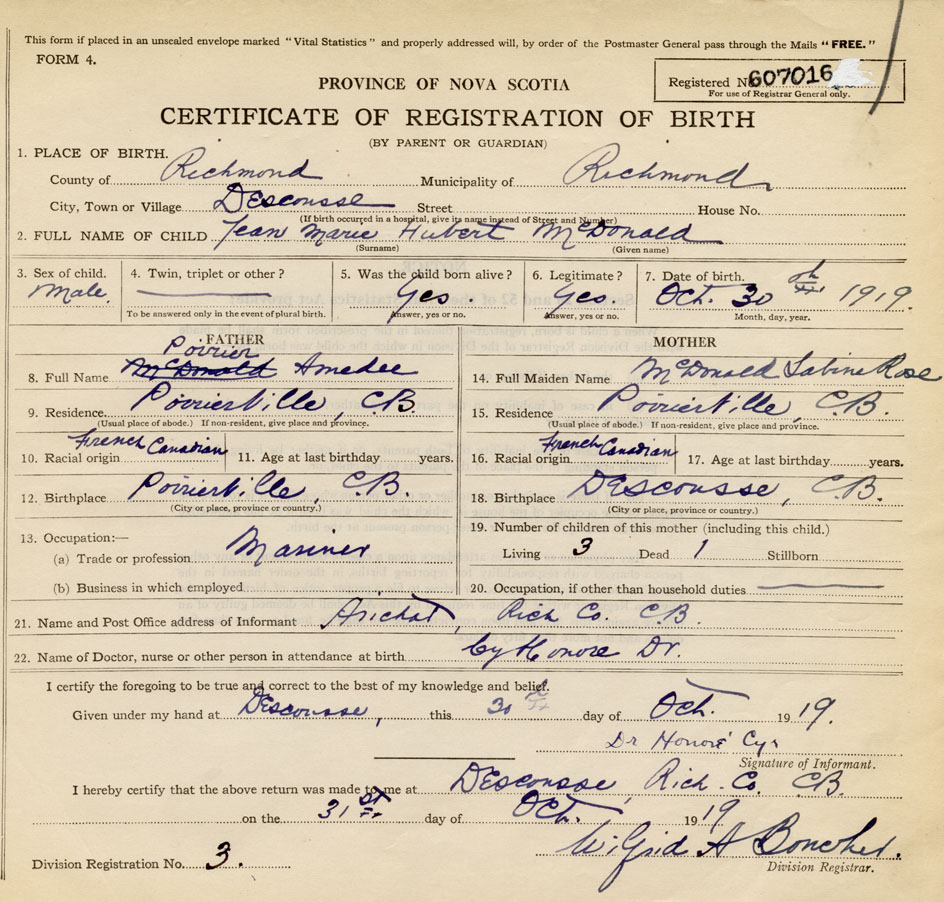 This form if placed in an unsealed envelope marked "Vital Statistics" and properly addressed will, by order of the Postmaster General pass through the Mails "FREE."
FORM 4.
PROVINCE OF NOVA SCOTIA
Registered No. 607016
For use of Registrar General only.
CERTIFICATE OF REGISTRATION OF BIRTH
(BY PARENT OR GUARDIAN)
1. PLACE OF BIRTH.
County of Richmond Municipality of Richmond
City, Town or Village DEscousse Street House No.
(If birth occurred in a hospital, give its name instead of Street and Number)
2. FULL NAME OF CHILD Jean Marie Hubert McDonald
(Surname) (Given name)
3. Sex of child. 4. Twin, triplet or other? 5. Was the child born alive? 6. Legitimate? 7. Date of birth.
Male. Yes. Yes. Oct. 30 th 1919
To be answered only in the event of plural birth. Answer, yes or no. Answer, yes or no. Month, day, year.
FATHER MOTHER
Poirier
8. Full Name McDonald Amedee 14. Full Maiden Name McDonald Sabine Rose
9. Residence. Poirierville, C.B. 15. Residence Poirierville, C.B.
(Usual place of abode.) If non-resident, give place and province. (Usual place of abode.) If non-resident, give place and province.
10. Racial origin French Canadian 11. Age at last birthday years. 16. Racial origin French Canadian 17. Age at last birthday years.
12. Birthplace Poirierville, C.B. 18. Birthplace DEscousse, C.B.
(City or place, province or country.) (City or place, province or country.)
13. Occupation:— 19. Number of children of this mother (including this child.)
(a) Trade or profession Mariner Living 3 Dead 1 Stillborn
(b) Business in which employed 20. Occupation, if other than household duties
21. Name and Post Office address of Informant Arichat, Rich Co. C.B.
22. Name of Doctor, nurse or other person in attendance at birth Cy Honore Dr.
I certify the foregoing to be true and correct to the best of my knowledge and belief.
Given under my hand at DEscousse, this 30 day of Oct. 1919.
Dr Honoré Cyr
Signature of Informant.
I hereby certify that the above return was made to me at DEscousse, Rich. Co. C.B.
on the 31 st day of Oct. 1919
Wilfrid A Boucher.
Division Registration No. 3. Division Registrar.